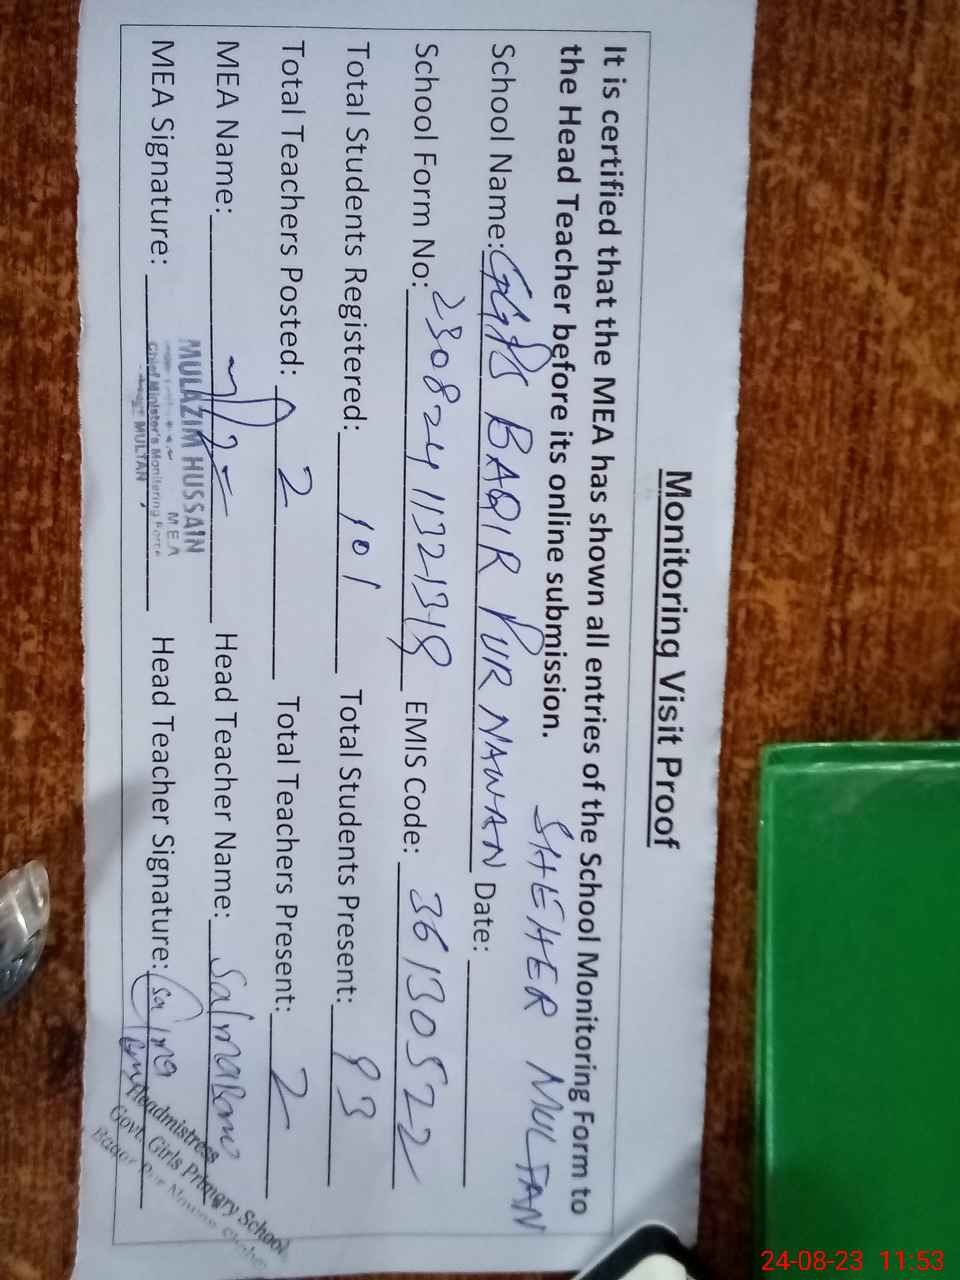 Monitoring Visit Proof
It is certified that the MEA has shown all entries of the School Monitoring Form to
the Head Teacher before its online submission.
SHEHER MULTAN
School Name: GGPS BAQIR PUR NAWAN Date:
School Form No: EMIS Code: 36130522
Total Students Registered: 101 Total Students Present: 93
Total Teachers Posted: 2 Total Teachers Present: 2
MEA Name: Head Teacher Name: Salma
MEA Signature: Head Teacher Signature: Salma
MULAZIM HUSSAIN
MEA
Chief Minister's Monitoring Force
MULTAN
Headmistress
Govt. Girls Primary School
24-08-23 11:53